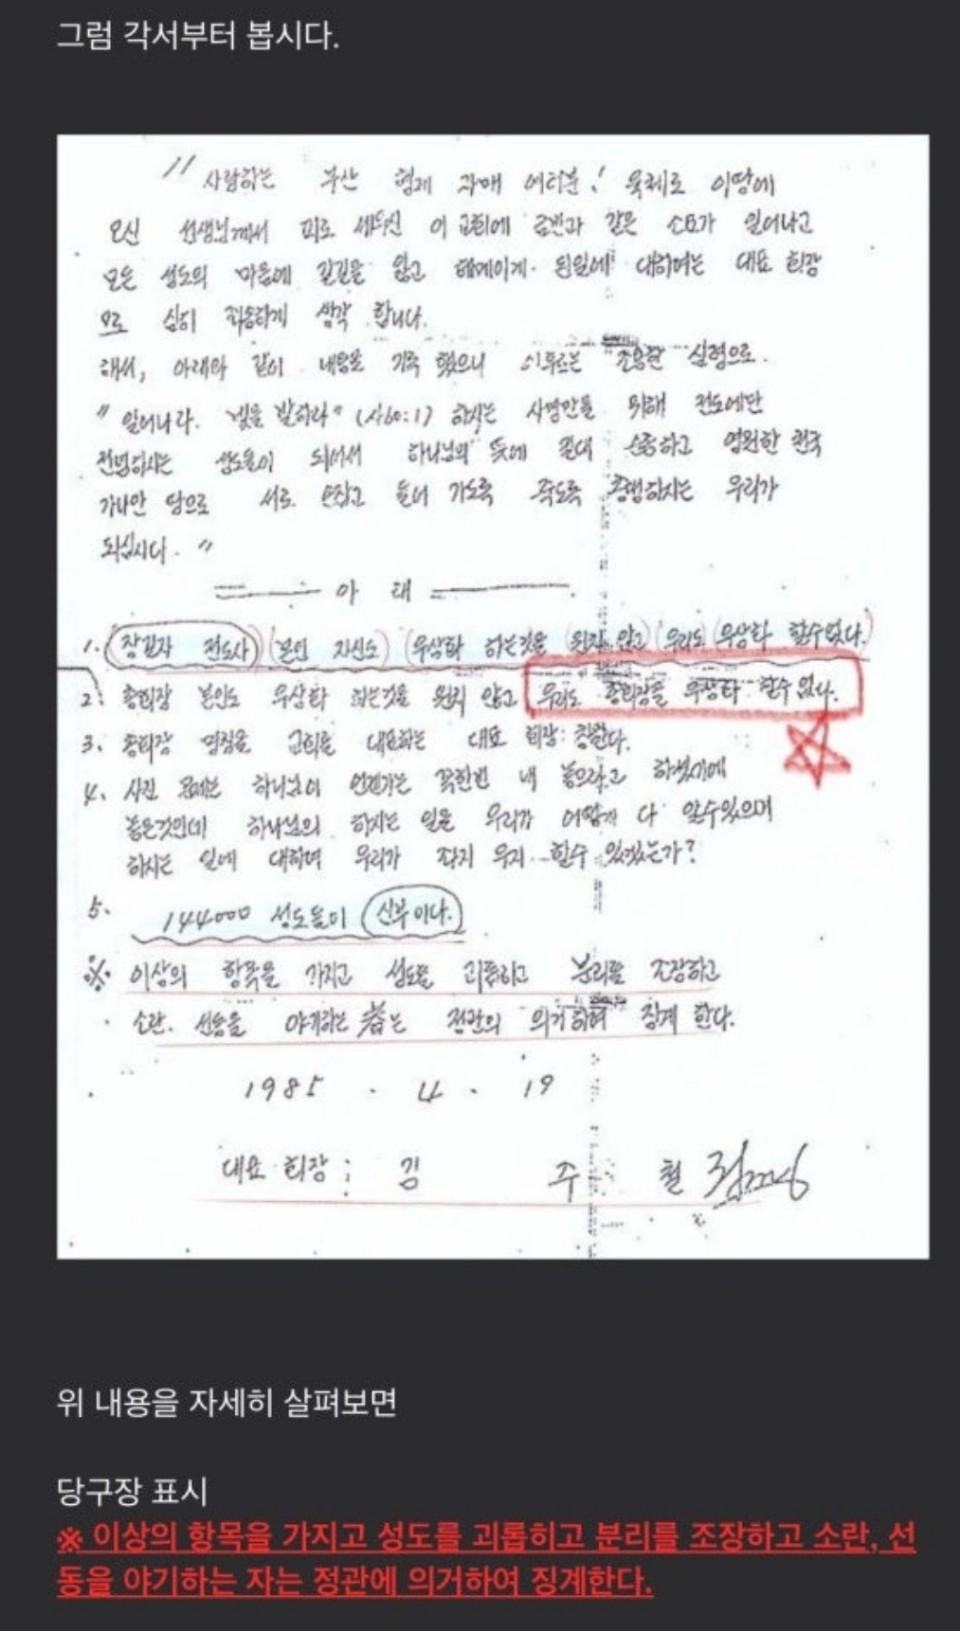 그럼 각서부터 봅시다.
" 사랑하는 부산 형제 자매 여러분! 육체로 이땅에
오신 선생님께서 피로 세우신 이 교회에 금번과 같은 소요가 일어나고
모든 성도의 마음에 갈길을 잃고 헤메이게 된일에 대하여는 대표 회장
으로 심히 죄송하게 생각 합니다.
해서, 아래와 같이 내용을 기록 했으니 이후로는 조용한 심령으로
" 일어나라. 빛을 발하라" (사60:1) 하시는 사명만을 위해 전도에만
전념하시는 성도들이 되어서 하나님의 뜻에 절대 순종하고 영원한 천국
가나안 땅으로 서로 손잡고 들어 가도록 하시는 우리가
되십시다. "
== 아 래 ==
1. 장길자 전도사) (본인 자신도) (우상화 하는것을 원치 않고) (우리도 (우상화 할수없다.)
2. 총회장 본인도 우상화 하는것을 원치 않고 우리도 총회장을 우상화 할수 없다.
3. 총회장 명칭을 교회를 대표하는 대표 회장: 칭한다.
4. 사진 문제는 하나님이 언젠가는 꼭한번 내 놓으라고 하셨기에
놓은것인데 하나님의 하시는 일을 우리가 어떻게 다 알수있으며
하시는 일에 대하여 우리가 좌지 우지 할수 있겠는가?
5. 144000 성도들이 신부이다.
※ 이상의 항목을 가지고 성도를 괴롭히고 분리를 조장하고
소란. 선동을 야기하는 者는 정관의 의거하여 징계 한다.
1985 . 4 . 19
대표 회장 : 김 주 철
위 내용을 자세히 살펴보면
당구장 표시
※ 이상의 항목을 가지고 성도를 괴롭히고 분리를 조장하고 소란, 선
동을 야기하는 자는 정관에 의거하여 징계한다.